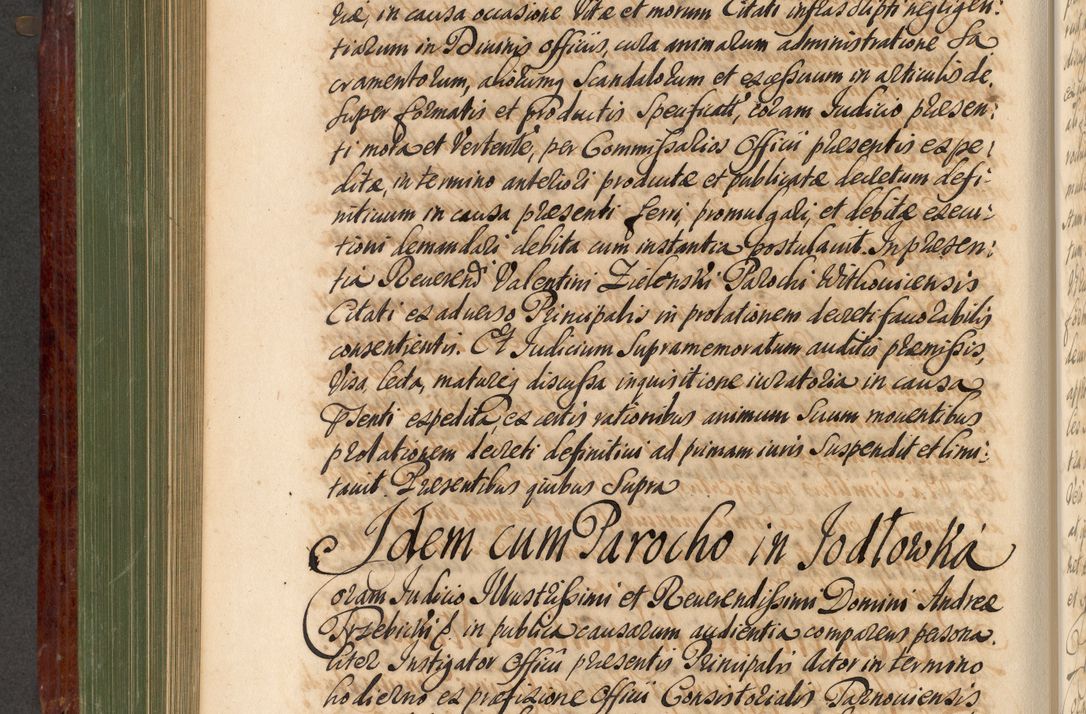 riæ, in causa occasione Vitæ et morum Citati infrascripti negligen:
tiarum in Diuinis officijs, cura animarum administratione Sa
cramentorum, aliorumq Scandalorum et excessuum in articulis de,
super formatis et productis Specificatt, coram Iudicio præsen:
ti mota et Vertente, per Commissarios Officii præsentis expe:
ditæ, in termino anteriori productæ et publicatæ decretum defi:
nitiuum in causa præsenti ferri, promulgari, et debitæ execu:
tioni demandari debita cum instantia postulauit. In præsen:
tia Reuerendi Valentini Zielonski Parochi Withouicensis
Citati ex aduerso Principalis in prolationem decreti fauorabilis
consentientis. Et Iudicium Supramemoratum auditis præmissis,
Visa lecta, matureq discussa inquisitione iuratoria in causa
pſenti expedita, ex certis rationibus animum Suum mouentibus
prolationem decreti definitiui ad primam iuris Suspendit et limi:
tauit. Præsentibus quibus Supra
Idem cum Parocho in Jodłowka
Coram Iudicio Illustrissimi et Reuerendissimi Domini Andreæ
Trzebicki in publica causarum audientia comparens persona.
liter Instigator Officii præsentis Principalis Actor in termino
hodierno ex præfixione Officii Consistorialis Tarnouiensis